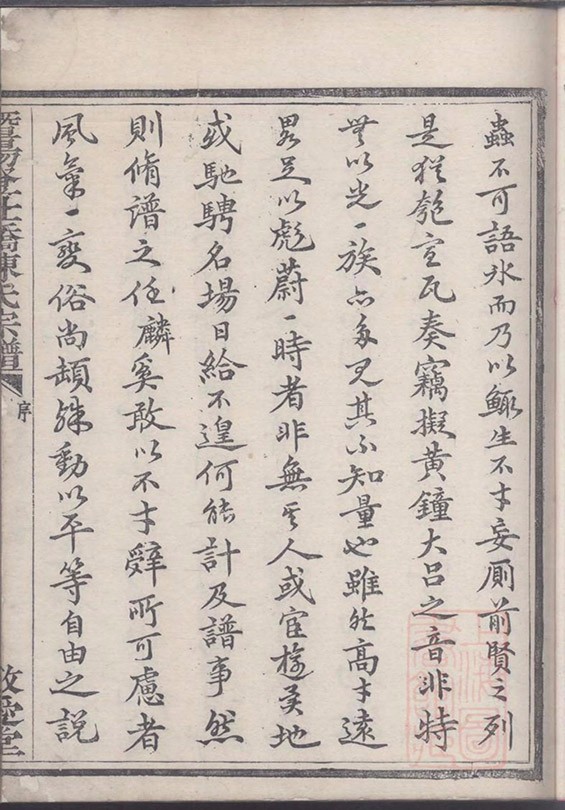 蟲不可語氷而乃以鯫生不才妄厠前賢之列
是猶匏宣瓦奏竊擬黄鐘大吕之音非特
無以光一族亦多見其不知量也雖然高才遠
畧足以彪蔚一時者非無其人或宦遊異地
或馳騁名場日給不遑何能計及譜事然
則脩譜之任麟奚敢以不才辭所可慮者
風氣一變俗尚頓殊動以平等自由之説
陳氏宗譜
序
敬愛堂